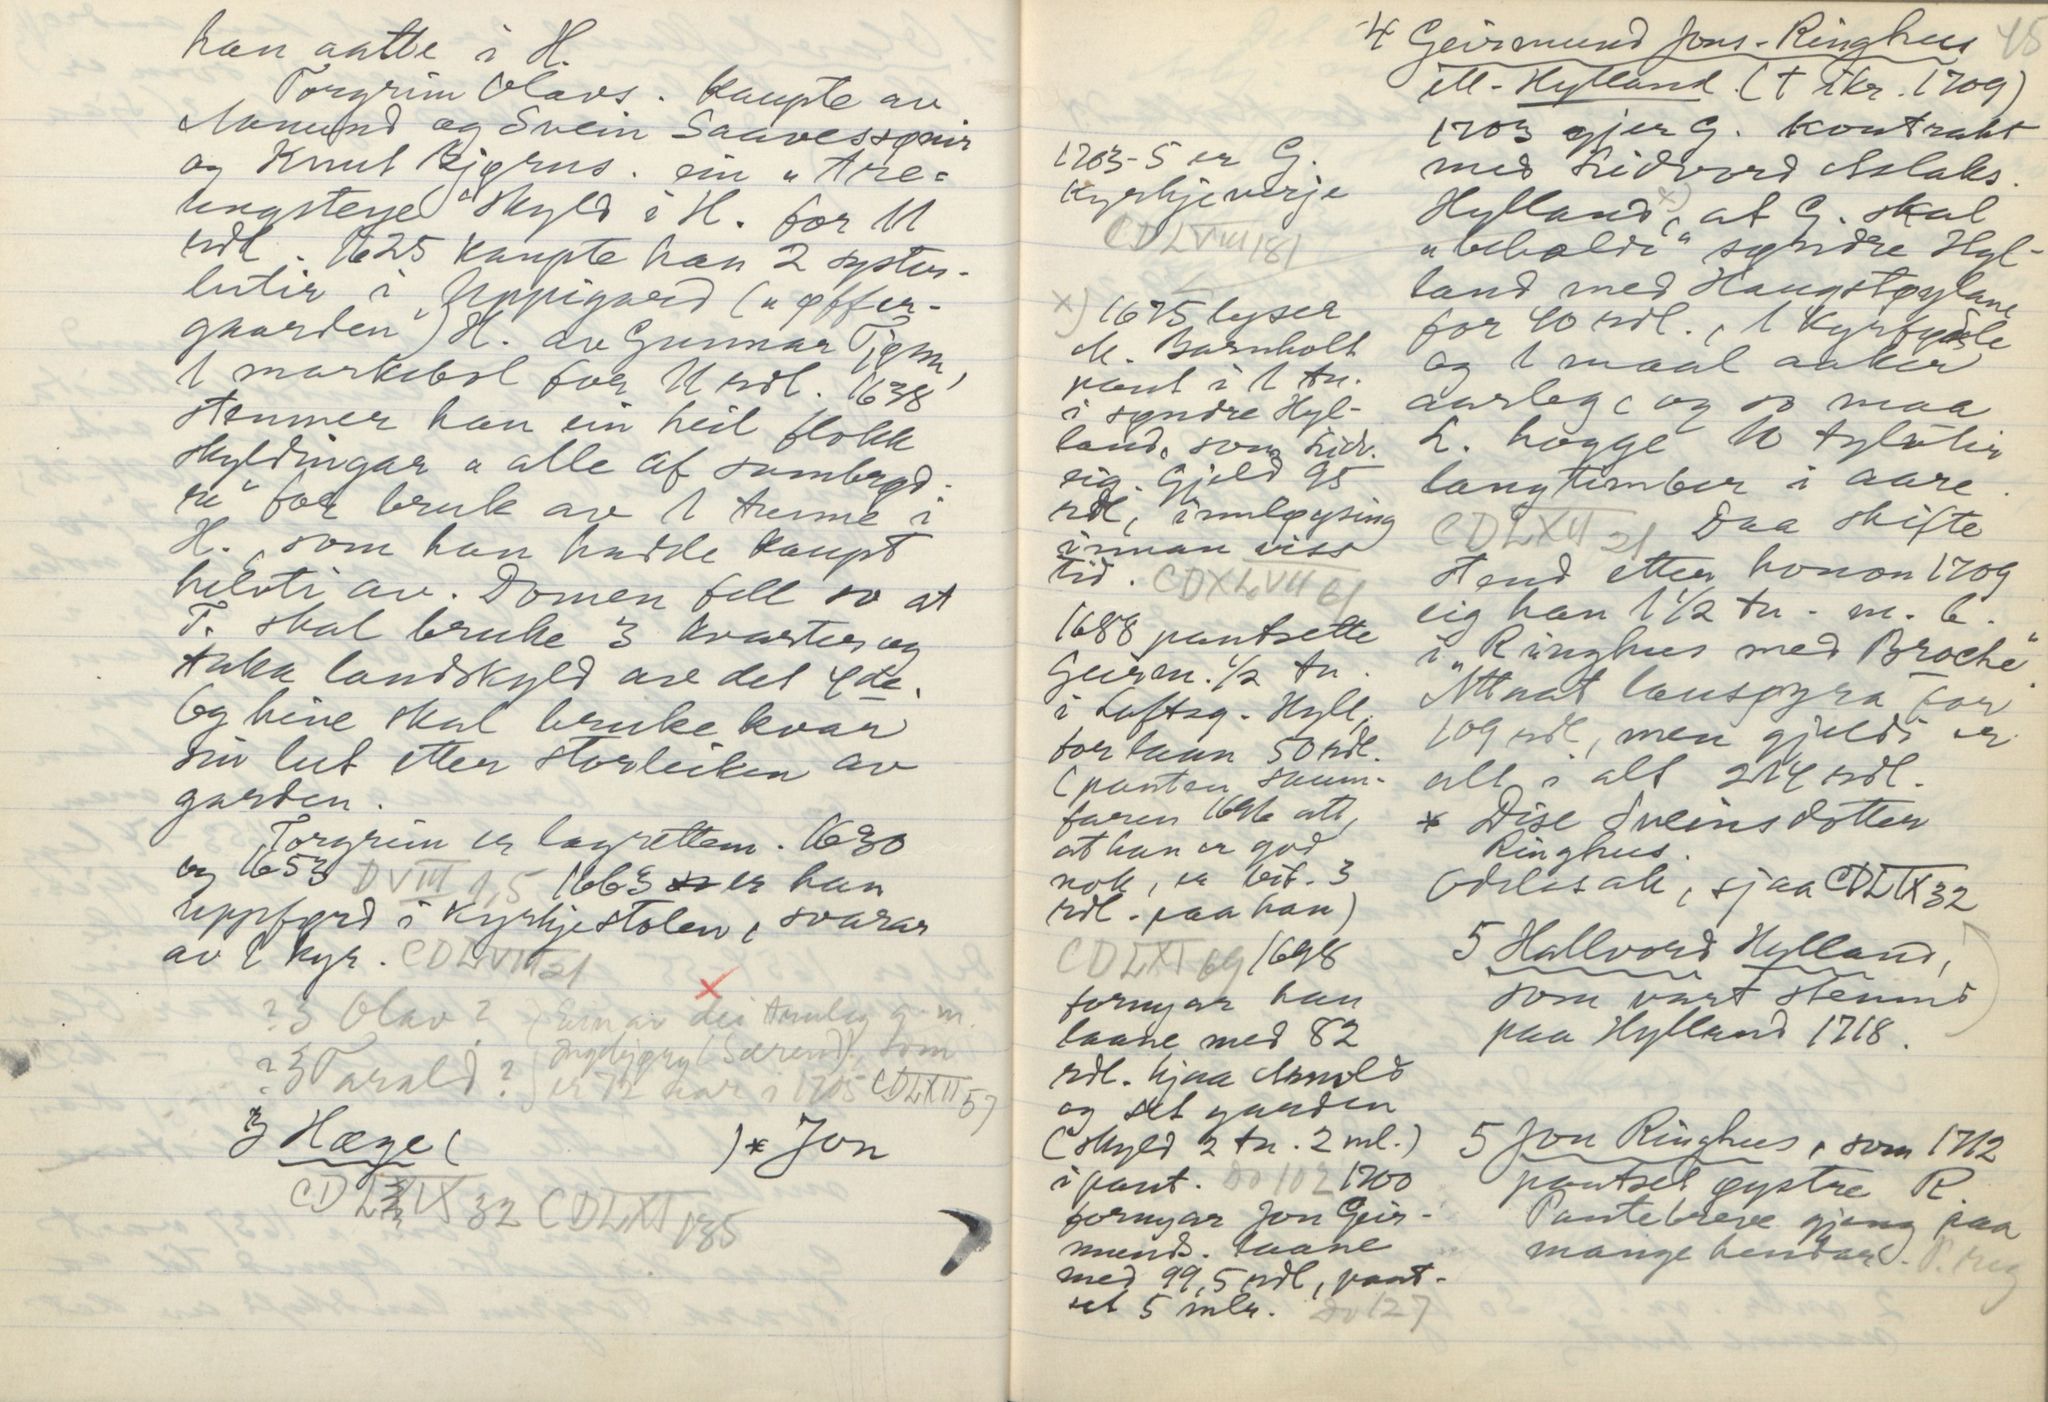 han aatte i H.
Torgrim Olavs. kaupte av
Aamund og Svein Saavessønir
og Knut Bjørns. ein „tre-
ungsteye" skyld i H. for 11
rdl. 1625 kaupte han 2 syster-
lutir i Uppigard („øffer-
gaarden") H. av Gunnar Tjøm,
1 markebol for 11 rdl. 1638
stemner han ein heil flokk
skyldingar „alle af sambrød-
re" for bruk av 1 tunne i
H., som han hadde kaupt
helvti av. Domen fell so at
T. skal bruke 3 kvarter og
taka landskyld av det 4de.
Og hine skal bruke kvar
sin lut etter storleiken av
garden.
Torgrim er lagrettem. 1630
og 1653 DVIII 9,5 1663 er han
uppførd i kyrkjestolen, svarar
av 1 kyr. CDLVII 21
?3 Olav? (Einar dei
?3 Tarald? er 72 aar i 1705 CDLXII 57
3 Hæge ( ) * Jon
CDLIX 32 CDLXI 185
1703-5 er G.
kyrkjeverje
CDLVIII 181
x) 1675 lyser
M. Barnholt
pant i 1 tn.
i søndre Hyl-
land, som Lidv.
eig. Gjeld 95
rdl, innløysing
innan viss
tid. CDXLVII 61
1688 pantsette
Geirm. 1/2 tn.
i Loftsg. Hyll.
for laan 50 rdl.
(panten saum-
faren 1696 att,
at han er god
nok, er bit. 3
rdl. paa han)
CDLXI 69 1698
fornyar han
laane med 82
rdl. hjaa Arnold
og set garden
(skyld 2 tn. 2 ml.)
i pant. Do 102 1700
fornyar Jon Geir-
munds. laane
med 99,5 rdl, pant-
set 5 mlr. Do 127
45
4 Geirmund Jons. Ringhus
ell. Hylland. († ikr. 1709)
1703 gjer G. kontrakt
med Lidvord Aslaks.
Hylland x), at G. skal
„beholde" søndre Hyl-
land med Haugstøylane
for 40 rdl., 1 kyrfødsle
og 1 maal aaker
aarleg, og so maa
L. hogge 10 tylvtir
langtimber i aare.
CDLXII 21 Daa skifte
stend etter honom 1709
eig han 1 1/2 tn. m. b.
i „Ringhus med Broche".
Attaat lausøyra for
109 rdl, men gjeldi er
alt i alt 214 rdl.
* Dise Sveinsdotter
Ringhus.
Odelssak, sjaa CDLIX 32
5 Hallvord Hylland,
som vart stemnd
paa Hylland 1718.
5 Jon Ringhus, som 1712
pantset øystre R.
Pantebreve gjeng paa
mange hendar.